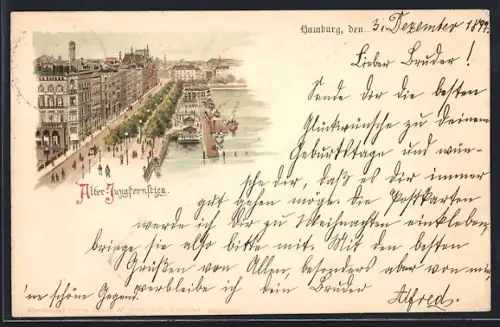 Hamburg, den 3. Dezember 189
Lieber Bruder!
Sende Dir die besten
Glückwünsche zu Deinem
Geburtstage und wün-
sche dir, daß es dir immer
gut gehen möge. Die Postkarten
werde ich Dir zu Weihnachten einkleben,
bringe sie also bitte mit. Mit den besten
Grüßen von Allen, besonders aber von mir,
verbleibe ich dein Bruder
Alfred.
'ne schöne Gegend.
Alter Jungfernstieg.